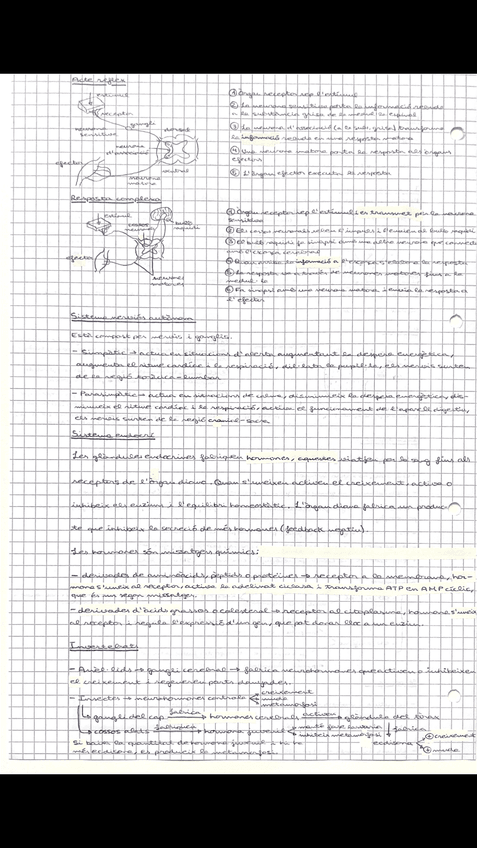 Acte reflex
estímul
receptor
gangli
neurona
sensitiva
dorsal
neurona
d'associació
efector
ventral
neurona
motora
① Òrgan receptor rep l'estímul
② La neurona sensitiva porta la informació rebuda
a la substància grisa de la medul·la espinal
③ La neurona d'associació (a la sub. grisa) transforma
la informació rebuda en una resposta motora
④ Una neurona motora porta la resposta als òrgans
efectors
⑤ L'òrgan efector executa la resposta
Resposta complexa
estímul
cossos
neuronals
bulb
raquidi
efector
neurones
motores
① Òrgan receptor rep l'estímul i es transmet per la neurona
sensitiva
② Els cossos neuronals reben l'impuls i l'envien al bulb raquidi
③ El bulb raquidi fa sinapsi amb una altra neurona que connecta
amb l'escorça cerebral
④ Quan arriba la informació a l'escorça, elabora la resposta
⑤ La resposta va a través de neurones motores fins a la
medul·la
⑥ Fa sinapsi amb una neurona motora i envia la resposta a
l'efector
Sistema nerviós autònom
Està compost per nervis i ganglis.
- Simpàtic → actua en situacions d'alerta augmentant la despesa energètica,
augmenta el ritme cardíac i la respiració, dilata la pupil·la, els nervis surten
de la regió toràcica-lumbar
- Parasimpàtic → actua en situacions de calma, disminueix la despesa energètica, dis-
minueix el ritme cardíac i la respiració, activa el funcionament de l'aparell digestiu,
els nervis surten de la regió cranial-sacra
Sistema endocrí
Les glàndules endocrines fabriquen hormones, aquestes viatgen per la sang fins als
receptors de l'òrgan diana. Quan s'uneixen activen el creixement, activa o
inhibeix els enzims i l'equilibri homeostàtic. L'òrgan diana fabrica un produc
te que inhibeix la secreció de més hormones (feedback negatiu).
Les hormones són missatgers químics:
- derivades de aminoàcids, pèptids o proteïnes → receptor a la membrana, hor-
mona s'uneix al receptor, activa la adelinat ciclasa i transforma ATP en AMP cíclic,
que fa un segon missatger.
- derivades d'àcids grassos o colesterol → receptor al citoplasma, hormona s'uneix
al receptor i regula l'expressió d'un gen, que pot donar lloc a un enzim.
Invertebrats
- Anèl·lids → gangli cerebral → fabrica neurohormones que activen o inhibeixen
el creixement i regeneren parts danyades.
- Insectes → neurohormones controla
creixement
muda
metamorfosi
gangli del cap
fabrica
hormones cerebrals
activen
glàndula del tòrax
cossos alats
fabriquen
hormona juvenil
manté fase larvària
inhibeix metamorfosi
fabrica
ecdisona
creixement
muda
Si baixa la quantitat de hormona juvenil i hi ha
més ecdisona, es produeix la metamorfosi.